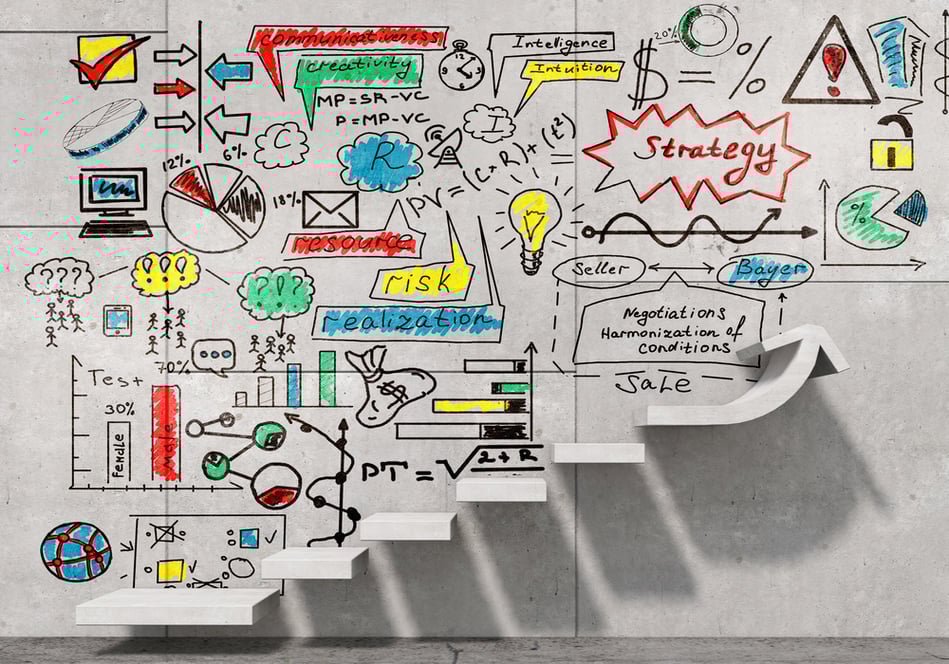 communicativeness
creativity
Intelligence
Intuition
20%
$ = %
MP=SR-VC
P=MP-VC
C
R
I
PV=(C+R)+(t²)
=
Strategy
12%
6%
18%
%
resource
risk
realization
Seller
Bayer
Negotiations
Harmonization of
conditions
Sale
???
!!!
?!?
Test
70%
30%
Female
male
$
PT=√2+R